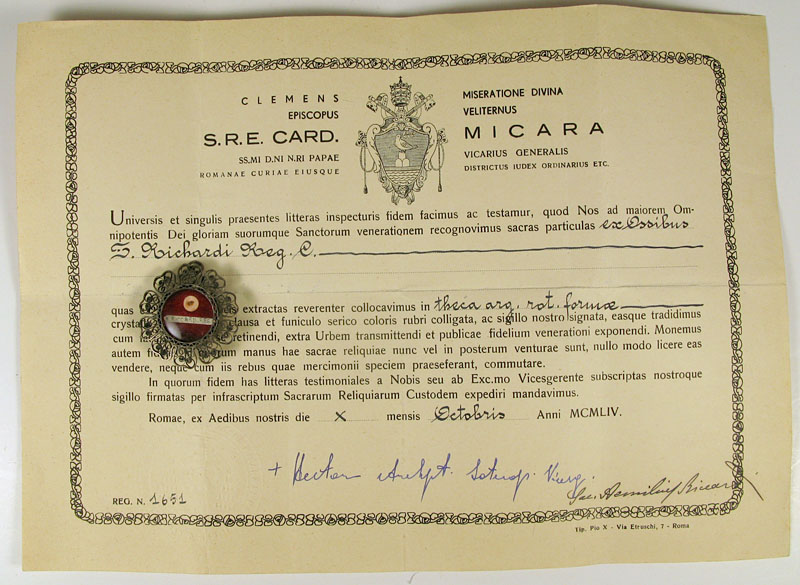 CLEMENS
EPISCOPUS
S.R.E. CARD.
SS.MI D.NI N.RI PAPAE
ROMANAE CURIAE EIUSQUE
MISERATIONE DIVINA
VELITERNUS
MICARA
VICARIUS GENERALIS
DISTRICTUS IUDEX ORDINARIUS ETC.
Universis et singulis praesentes litteras inspecturis fidem facimus ac testamur, quod Nos ad maiorem Om-
nipotentis Dei gloriam suorumque Sanctorum venerationem recognovimus sacras particulas ex Ossibus
S. Richardi Reg. C.
quas extractas reverenter collocavimus in theca arg. rot. formæ
crystal clausa et funiculo serico coloris rubri colligata, ac sigillo nostro signata, easque tradidimus
cum retinendi, extra Urbem transmittendi et publicae fidelium venerationi exponendi. Monemus
autem manus hae sacrae reliquiae nunc vel in posterum venturae sunt, nullo modo licere eas
vendere, neque cum iis rebus quae mercimonii speciem praeseferant, commutare.
In quorum fidem has litteras testimoniales a Nobis seu ab Exc.mo Vicesgerente subscriptas nostroque
sigillo firmatas per infrascriptum Sacrarum Reliquiarum Custodem expediri mandavimus.
Romae, ex Aedibus nostris die X mensis Octobris Anni MCMLIV.
+ Hector
REG. N. 1651
Tip. Pio X - Via Etruschi, 7 - Roma